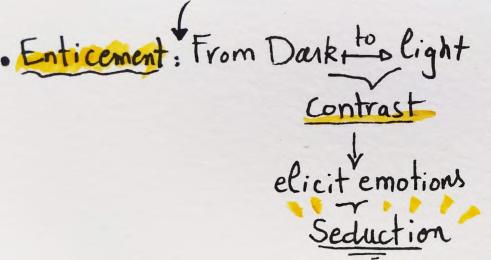 • Enticement: From Dark to light
contrast
elicit emotions
Seduction